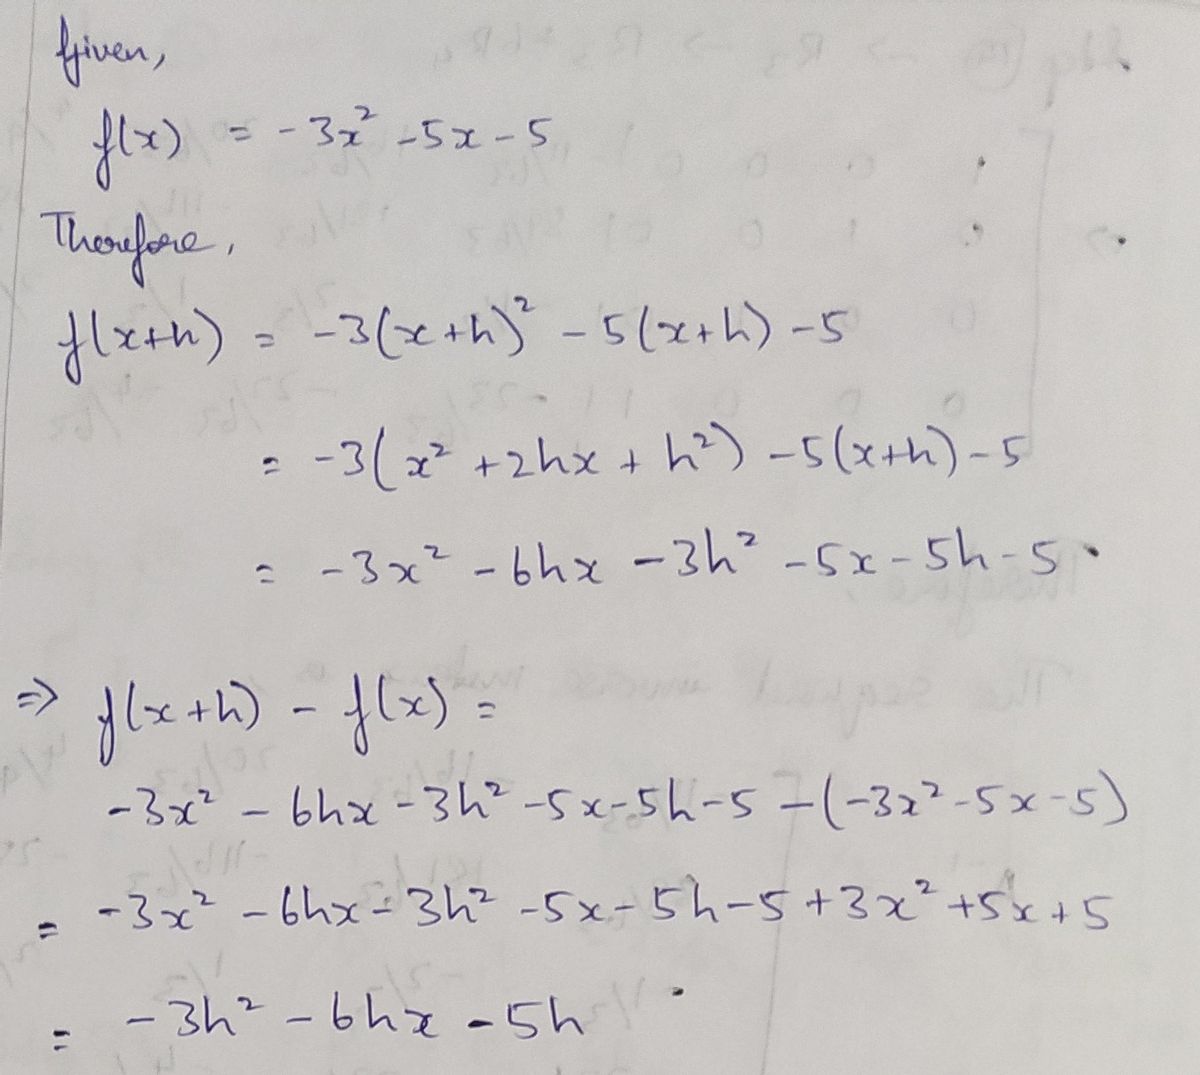 Given,
f(x) = -3x² -5x - 5
Therefore,
f(x+h) = -3(x+h)² - 5(x+h) -5
= -3(x² +2hx + h²) -5(x+h) -5
= -3x² -6hx -3h² -5x -5h -5
⇒ f(x+h) - f(x) =
-3x² - 6hx -3h² -5x-5h-5 -(-3x²-5x-5)
= -3x² -6hx -3h² -5x -5h -5 +3x² +5x +5
= -3h² -6hx -5h